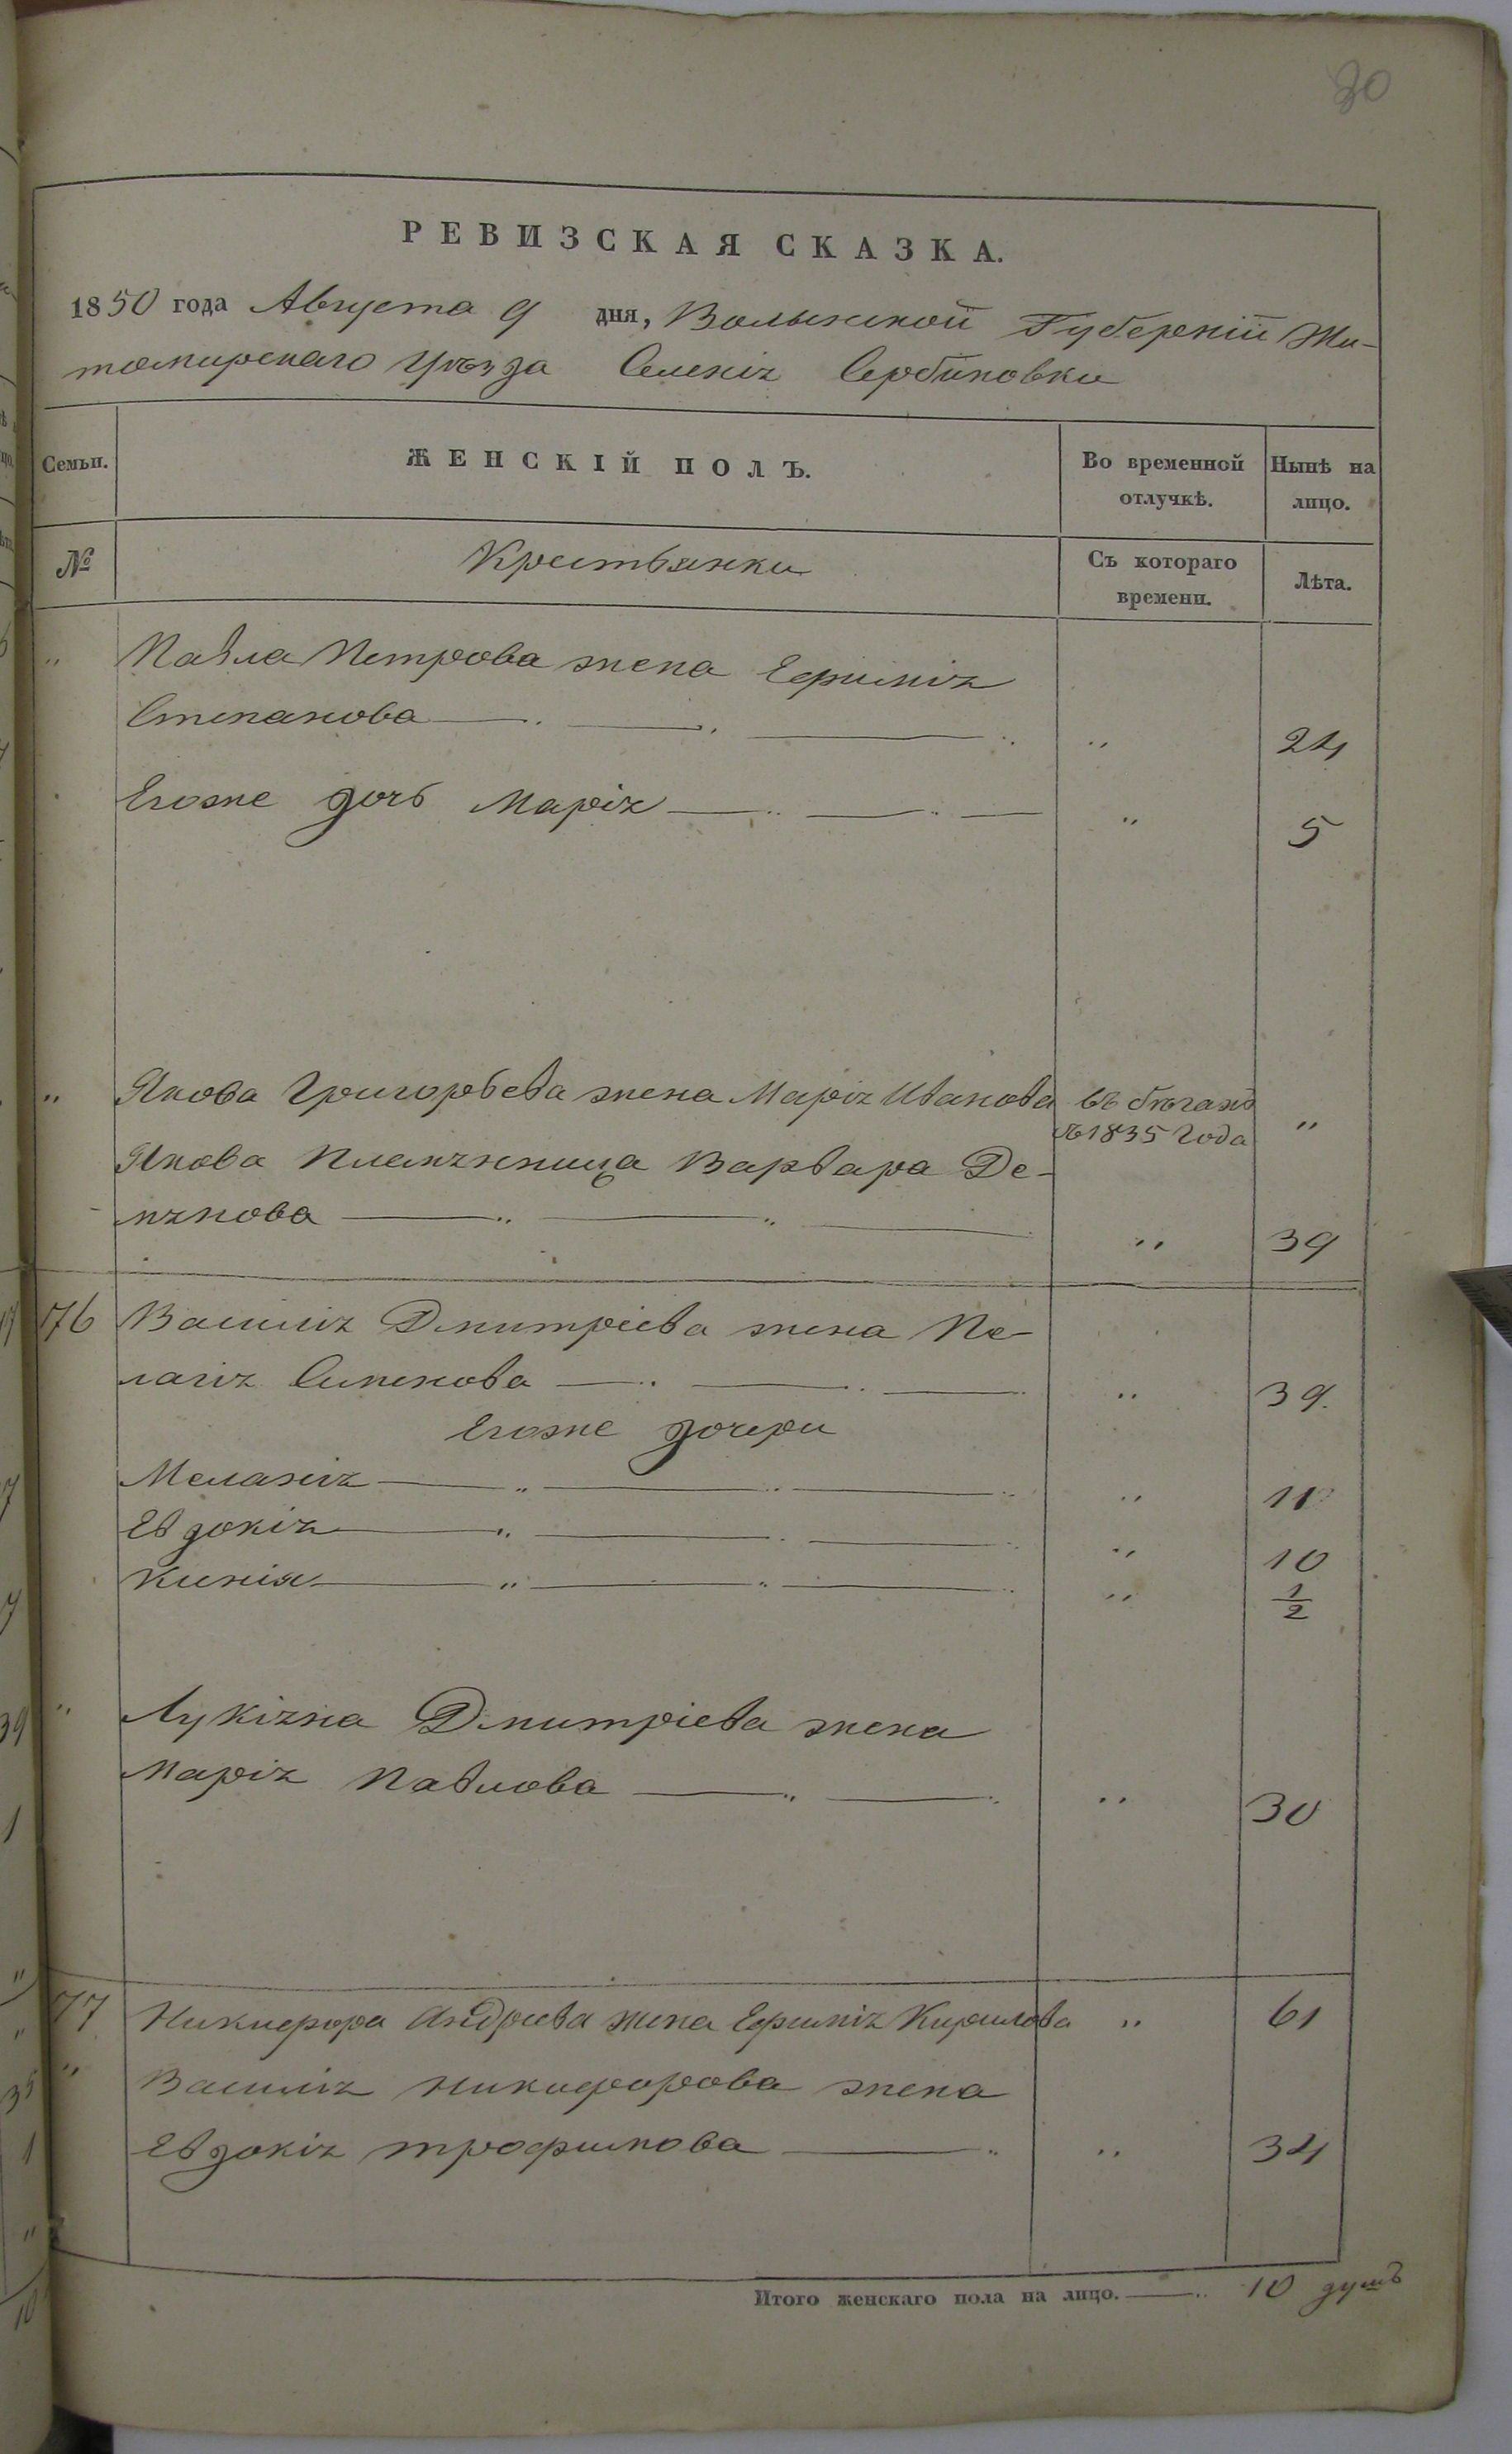 30
РЕВИЗСКАЯ СКАЗКА.
1850 года Августа 9 дня, Волынской Губерніи Жи-
томирскаго Уѣзда Селенія Сербиновки
Семьи. ЖЕНСКІЙ ПОЛЪ. Во временной отлучкѣ. Нынѣ на лицо.
№ Крестьянки Съ котораго времени. Лѣта.
" Павла Петрова жена Ефимія
Степанова " 24
Егоже дочь Марія " 5
" Якова Григорьева жена Марія Иванова въ бѣгахъ
съ 1835 года "
Якова племянница Варвара Де-
мянова " 39
76 Василія Дмитріева жена Пе-
лагія Семенова " 39.
Егоже дочери
Меланія " 11
Евдокія " 10
Ксенія " 1/2
" Лукіяна Дмитріева жена
Марія Павлова " 30
77 Никифора Андреева жена Ефимія Кирилова " 61
" Василія Никифорова жена
Евдокія Трофимова " 34
Итого женскаго пола на лицо. 10 душъ